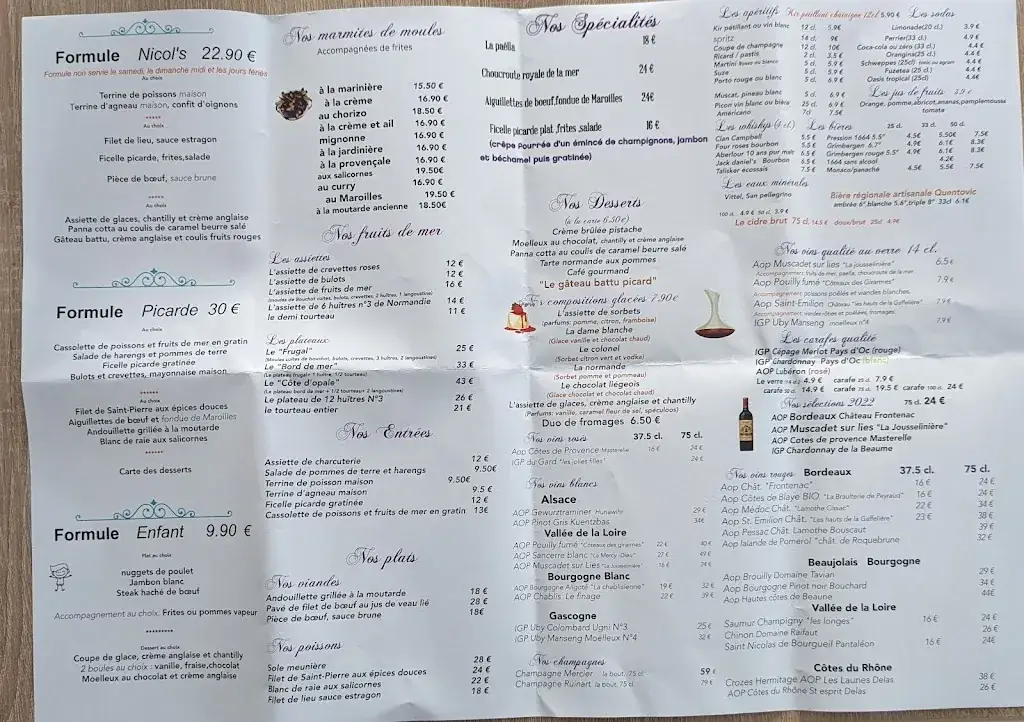 Formule Nicol's 22.90 €
Formule non servie le samedi, le dimanche midi et les jours fériés
Au choix
Terrine de poissons maison
Terrine d'agneau maison, confit d'oignons
*****
Au choix
Filet de lieu, sauce estragon
Ficelle picarde, frites,salade
Pièce de bœuf, sauce brune
*****
Au choix
Assiette de glaces, chantilly et crème anglaise
Panna cotta au coulis de caramel beurre salé
Gâteau battu, crème anglaise et coulis fruits rouges
Formule Picarde 30 €
Au choix
Cassolette de poissons et fruits de mer en gratin
Salade de harengs et pommes de terre
Ficelle picarde gratinée
Bulots et crevettes, mayonnaise maison
******
Au choix
Filet de Saint-Pierre aux épices douces
Aiguillettes de bœuf et fondue de Maroilles
Andouillette grillée à la moutarde
Blanc de raie aux salicornes
******
Carte des desserts
Formule Enfant 9.90 €
Plat au choix
nuggets de poulet
Jambon blanc
Steak haché de bœuf
Accompagnement au choix: Frites ou pommes vapeur
*********
Dessert au choix
Coupe de glace, crème anglaise et chantilly
2 boules au choix : vanille, fraise,chocolat
Moelleux au chocolat et crème anglaise
Nos marmites de moules
Accompagnées de frites
à la marinière 15.50 €
à la crème 16.90 €
au chorizo 18.50 €
à la crème et ail 16.90 €
mignonne 16.90 €
à la jardinière 16.90 €
à la provençale 16.90 €
aux salicornes 19.50€
au curry 16.90 €
au Maroilles 19.50 €
à la moutarde ancienne 18.50€
Nos fruits de mer
Les assiettes
L'assiette de crevettes roses 12 €
L'assiette de bulots 12 €
L'assiette de fruits de mer 16 €
(moules de bouchot cuites, bulots, crevettes, 2 huîtres, 1 langoustines)
L'assiette de 6 huîtres n°3 de Normandie 14 €
le demi tourteau 11 €
Les plateaux
Le "Frugal" 25 €
(Moules cuites de bouchot, bulots, crevettes, 3 huîtres, 2 langoustines)
Le "Bord de mer" 33 €
(Le plateau frugal+ 1 huître, 1/2 tourteau)
Le "Côte d'opale" 43 €
(Le plateau bord de mer + 1/2 tourteau+ 2 langoustines)
Le plateau de 12 huîtres N°3 26 €
le tourteau entier 21 €
Nos Entrées
Assiette de charcuterie 12 €
Salade de pommes de terre et harengs 9.50€
Terrine de poisson maison 9.50€
Terrine d'agneau maison 9.5 €
Ficelle picarde gratinée 12 €
Cassolette de poissons et fruits de mer en gratin 13€
Nos plats
Nos viandes
Andouillette grillée à la moutarde 18 €
Pavé de filet de bœuf au jus de veau lié 28 €
Pièce de bœuf, sauce brune 18€
Nos poissons
Sole meunière 28 €
Filet de Saint-Pierre aux épices douces 24 €
Blanc de raie aux salicornes 22 €
Filet de lieu sauce estragon 18 €
Nos Spécialités
La paëlla 18 €
Choucroute royale de la mer 24 €
Aiguillettes de bœuf,fondue de Maroilles 24€
Ficelle picarde plat ,frites ,salade 16 €
(crêpe fourrée d'un émincé de champignons, jambon
et béchamel puis gratinée)
Nos Desserts
(à la carte 6.50€)
Crème brûlée pistache
Moelleux au chocolat, chantilly et crème anglaise
Panna cotta au coulis de caramel beurre salé
Tarte normande aux pommes
Café gourmand
"Le gâteau battu picard"
compositions glacées 7.90€
L'assiette de sorbets
(parfums: pomme, citron, framboise)
La dame blanche
(Glace vanille et chocolat chaud)
Le colonel
(Sorbet citron vert et vodka)
La normande
(Sorbet pomme et pommeau)
Le chocolat liégeois
(Glace chocolat et chocolat chaud)
L'assiette de glaces, crème anglaise et chantilly
(Parfums: vanille, caramel fleur de sel, spéculoos)
Duo de fromages 6.50 €
Nos vins rosés 37.5 cl. 75 cl.
Aop Côtes de Provence Masterelle 16 € 24 €
IGP du Gard "les jolies filles" 24 €
Nos vins blancs
Alsace
AOP Gewurztraminer Hunawihr 29 €
AOP Pinot Gris Kuentzbas 34€
Vallée de la Loire
AOP Pouilly fumé "Côteaux des girarmes" 22 € 40 €
AOP Sancerre blanc "Le Mercy -Dieu" 27 € 49 €
AOP Muscadet sur Lies "La Jousselinière" 16 € 24 €
Bourgogne Blanc
AOP Bourgogne Aligoté "La chablisienne" 19 € 32 €
AOP Chablis Le finage 22 € 39 €
Gascogne
IGP Uby Colombard Ugni N°3 25 €
IGP Uby Manseng Moelleux N°4 32 €
Nos champagnes
Champagne Mercier la bout. 75 cl. 59 €
Champagne Ruinart la bout. 75 cl. 79 €
Les apéritifs Kir pétillant chanoigne 12cl 5.90 €
Kir pétillant ou vin blanc 12 cl. 5.9€
spritz 14 cl. 9€
Coupe de champagne 12 cl. 10€
Ricard / pastis 2 cl. 3.5 €
Martini rouge ou blanc 5 cl. 5.9 €
Suze 5 cl. 5.9 €
Porto rouge ou blanc 5 cl. 5.9 €
Muscat, pineau blanc 5 cl. 6.9 €
Picon vin blanc ou bière 25 cl. 6.9 €
Américano 7cl 7.5€
Les sodas
Lemonade(20 cl.) 3.9 €
Perrier(33 cl.) 4.9 €
Coca-cola ou zéro (33 cl.) 4.4 €
Orangina(25 cl.) 4.4 €
Schweppes (25cl) tonic ou agrum 4.4 €
Fuzetea (25 cl.) 4.4 €
Oasis tropical (25cl) 4.4€
Les jus de fruits 3.9 €
Orange, pomme,abricot,ananas,pamplemousse
tomata
Les whiskys (4 cl.)
Clan Campbell 5.5 €
Four roses bourbon 5.5 €
Aberlour 10 ans pur malt 6.5 €
Jack daniel's Bourbon 6.5 €
Talisker ecossais 7.5 €
Les bières 25 cl. 33 cl. 50 cl.
Pression 1664 5.5° 4.5€ 5.50€ 7.5€
Grimbergen 6.7° 4.9€ 6.1€ 8.3€
Grimbergen rouge 5.5° 4.9€ 6.1€ 8.3€
1664 sans alcool 4.2€
Monaco/panaché 4.5€ 5.5€ 7.5€
Les eaux minérales
Vittel, San pellegrino
100 cl. 4.9 € 50 cl. 3.9 €
Bière régionale artisanale Quentovic
ambrée 6°,blanche 5.6°,triple 8° 33cl 6.1€
Le cidre brut 75 cl. 14.5 € doux/brut 25cl 4.9€
Nos vins qualité au verre 14 cl.
Aop Muscadet sur lies "La jousselinière" 6.5 €
Accompagnement: fruits de mer, paella, choucroute de la mer
Aop Pouilly fumé "Côteaux des Girarmes" 7.9 €
Accompagnement poissons poêlés et viandes blanches.
Aop Saint-Emilion Château "les hauts de la Gaffelière" 7.9 €
Accompagnement: viandes rôties ou poêlées, fromages.
IGP Uby Manseng moelleux n°4 7.9 €
Les carafes qualité
IGP Cépage Merlot Pays d'Oc (rouge)
IGP Chardonnay Pays d'Oc (blanc)
AOP Lubéron (rosé)
Le verre 14 cl. 4.9 € carafe 25 cl. 7.9 €
carafe 50 cl. 14.9 € carafe 75 cl. 19.5 € carafe 100 cl. 24 €
Nos sélections 2022 75 cl. 24 €
AOP Bordeaux Château Frontenac
AOP Muscadet sur lies "La Jousselinière"
AOP Cotes de provence Masterelle
IGP Chardonnay de la Beaume
Nos vins rouges Bordeaux 37.5 cl. 75 cl.
Aop Chât. "Frontenac" 16 € 24 €
Aop Côtes de Blaye BIO "La Braulterie de Peyraud" 16 € 24 €
Aop Médoc Chât. "Lamothe Cissac" 22 € 34 €
Aop St. Emilion Chât. "Les hauts de la Gaffelière" 23 € 38 €
Aop Pessac Chât. Lamothe Bouscaut 39 €
Aop lalande de Pomerol "chât. de Roquebrune 32 €
Beaujolais Bourgogne
Aop Brouilly Domaine Tavian 29 €
Aop Bourgogne Pinot noir Bouchard 34 €
Aop Hautes côtes de Beaune 44€
Vallée de la Loire
Saumur Champigny "les longes" 16 € 24 €
Chinon Domaine Raifaut 26 €
Saint Nicolas de Bourgueil Pantaléon 16 € 24€
Côtes du Rhône
Crozes Hermitage AOP Les Launes Delas 38 €
AOP Côtes du Rhône St esprit Delas 26 €